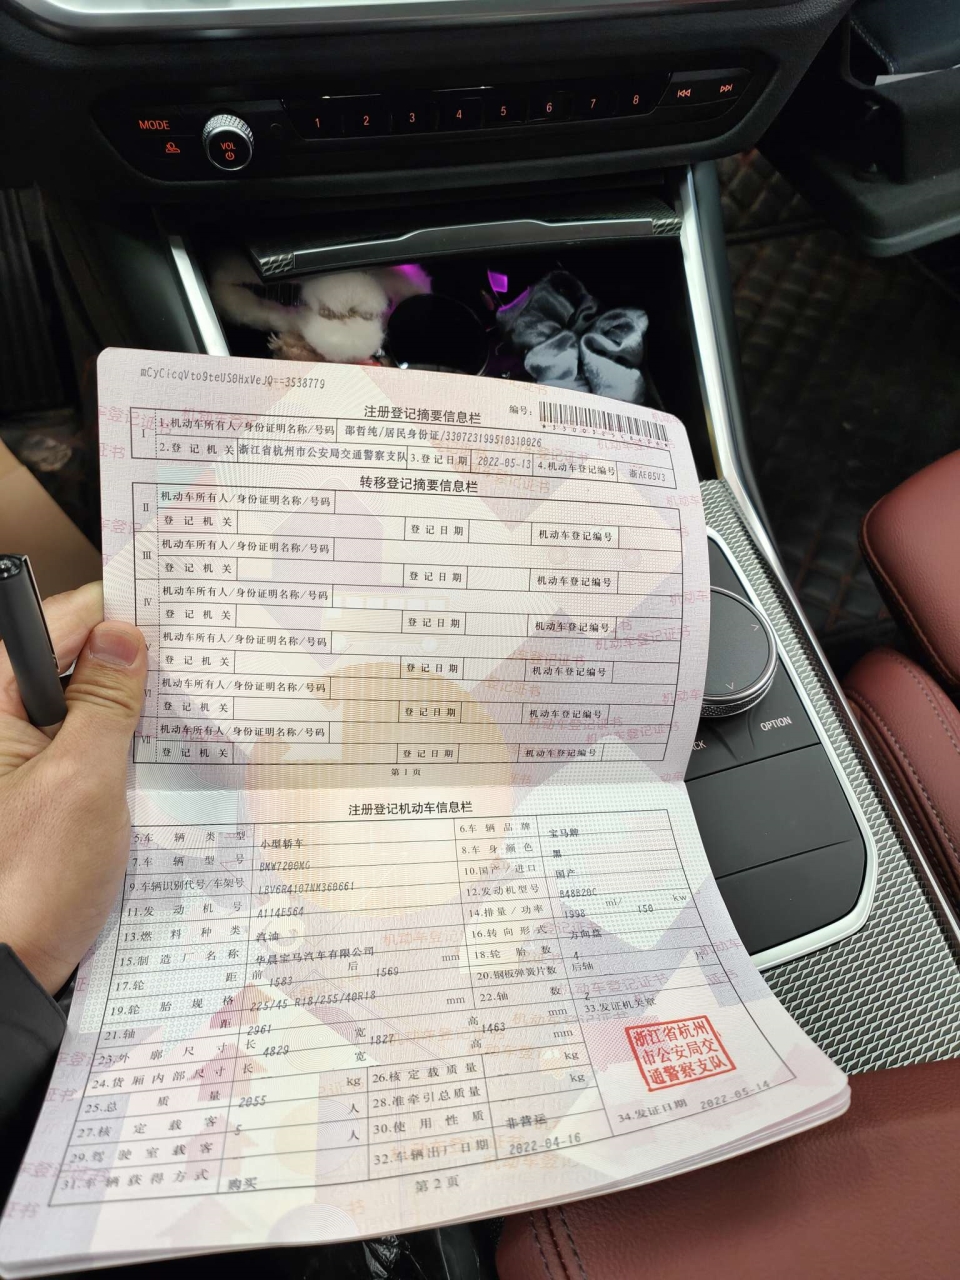 MODE
VOL
1 2 3 4 5 6 7 8
mCyCicqVto9teUS0HxVeJQ==3538779
注册登记摘要信息栏
编号:
I
1.机动车所有人/身份证明名称/号码 邵哲纯/居民身份证/330723199510310026
2.登记机关 浙江省杭州市公安局交通警察支队 3.登记日期 2022-05-13 4.机动车登记编号
转移登记摘要信息栏
II
机动车所有人/身份证明名称/号码
登记机关 登记日期 机动车登记编号
III
机动车所有人/身份证明名称/号码
登记机关 登记日期 机动车登记编号
IV
机动车所有人/身份证明名称/号码
登记机关 登记日期 机动车登记编号
V
机动车所有人/身份证明名称/号码
登记机关 登记日期 机动车登记编号
VI
机动车所有人/身份证明名称/号码
登记机关 登记日期 机动车登记编号
VII
机动车所有人/身份证明名称/号码
登记机关 登记日期 机动车登记编号
第1页
注册登记机动车信息栏
5.车辆类型 小型轿车 6.车辆品牌 宝马牌
7.车辆型号 BMW7200MG 8.车身颜色 黑
9.车辆识别代号/车架号 LBV6R4107NM360661 10.国产/进口 国产
11.发动机号 A114E564 12.发动机型号 B48B20C
13.燃料种类 汽油 14.排量/功率 1998 ml/ 150 kw
15.制造厂名称 华晨宝马汽车有限公司 16.转向形式 方向盘
17.轮距 前 1583 后 1569 mm 18.轮胎数 4
19.轮胎规格 225/45 R18/255/40R18 20.钢板弹簧片数 后轴
21.轴距 2961 mm 22.轴数 2
23.外廓尺寸 长 4829 宽 1827 高 1463 mm 33.发证机关章
24.货厢内部尺寸 长 宽 高 mm
25.总质量 2055 kg 26.核定载质量 kg
27.核定载客 5 人 28.准牵引总质量 kg
29.驾驶室载客 人 30.使用性质 非营运
31.车辆获得方式 购买 32.车辆出厂日期 2022-04-16 34.发证日期 2022-05-14
浙江省杭州
市公安局交
通警察支队
第2页
OPTION